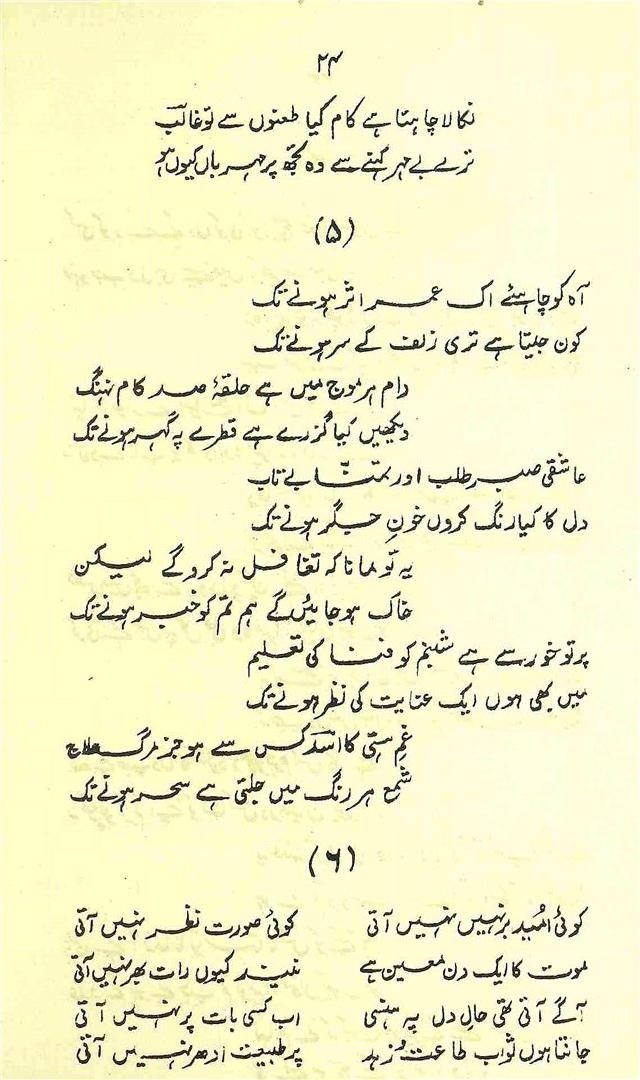 ۲۴
نکالا چاہتا ہے کام کیا طعنوں سے تو غالبؔ
ترے بے مہر کہنے سے وہ تجھ پر مہرباں کیوں ہو
(۵)
آہ کو چاہئے اک عمر اثر ہونے تک
کون جیتا ہے تری زلف کے سر ہونے تک
دام ہر موج میں ہے حلقۂ صد کام نہنگ
دیکھیں کیا گزرے ہے قطرے پہ گہر ہونے تک
عاشقی صبر طلب اور تمنّا بے تاب
دل کا کیا رنگ کروں خونِ جگر ہونے تک
یہ تو مانا کہ تغافل نہ کرو گے لیکن
خاک ہو جائیں گے ہم تم کو خبر ہونے تک
پرتو خور سے ہے شبنم کو فنا کی تعلیم
میں بھی ہوں ایک عنایت کی نظر ہونے تک
غمِ ہستی کا اسدؔ کس سے ہو جز مرگ علاج
شمع ہر رنگ میں جلتی ہے سحر ہونے تک
(۶)
کوئی امُید بر نہیں نہیں آتی کوئی صورت نظر نہیں آتی
موت کا ایک دن معین ہے نیند کیوں رات بھر نہیں آتی
آگے آتی تھی حالِ دل پہ ہنسی اب کسی بات پر نہیں آتی
جانتا ہوں ثواب طاعت و زہد پر طبیعت ادھر نہیں آتی